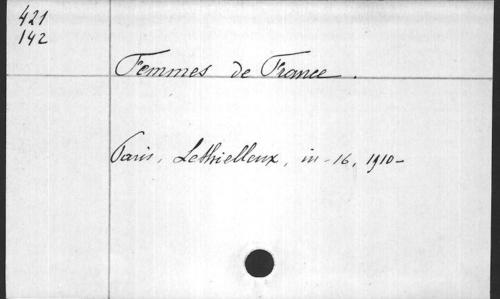 421
142
Femmes de France.
Paris, Lethielleux, in-16, 1910-